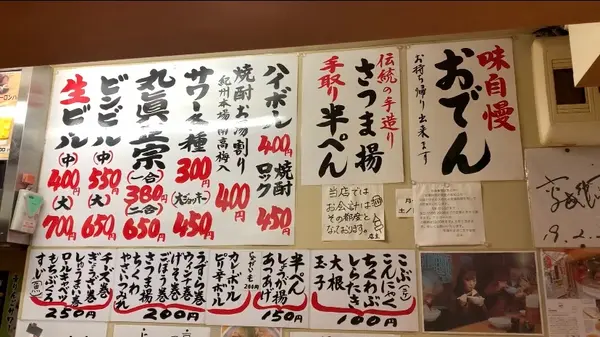 味自慢
おでん
お持ち帰り出来ます
伝統の手造り
さつま揚
手取り半ぺん
ハイボール 400円
焼酎ロック 450円
焼酎お湯割り
400円
サワー各種 300円
(大ジョッキー) 450円
(一合) 380円
(二合) 650円
ビンビール
(中) 550円
(大) 650円
生ビール
(中) 400円
(大) 700円
当店では
お会計は
その都度と
なっております。
店主
こぶ
こんにゃく
ちくわぶ
しらたき
大根
玉子
100円
半ぺん
しょうが揚
あつあげ
150円
じゃがいも 200円
カレーボール
ピリ辛ボール
うずら巻
ウィンナ巻
げそ巻
ごぼう巻
さつま揚
やさい揚
つみれ
200円
チーズ巻
ぎょうざ巻
しゅうまい巻
ロールキャベツ
もちぶくろ
すじ(魚)
250円